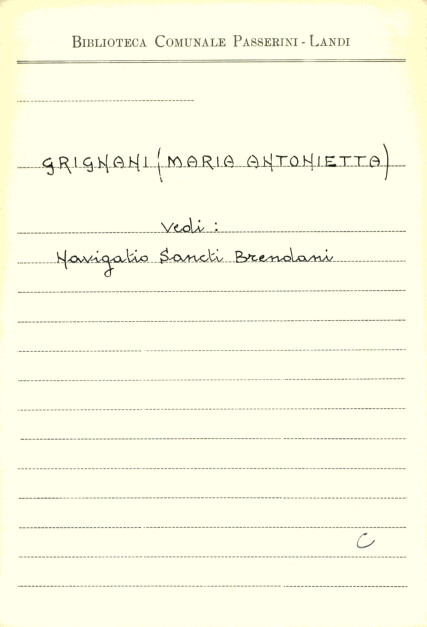 BIBLIOTECA COMUNALE PASSERINI - LANDI
GRIGNANI (MARIA ANTONIETTA)
Vedi :
Navigatio Sancti Brendani
C